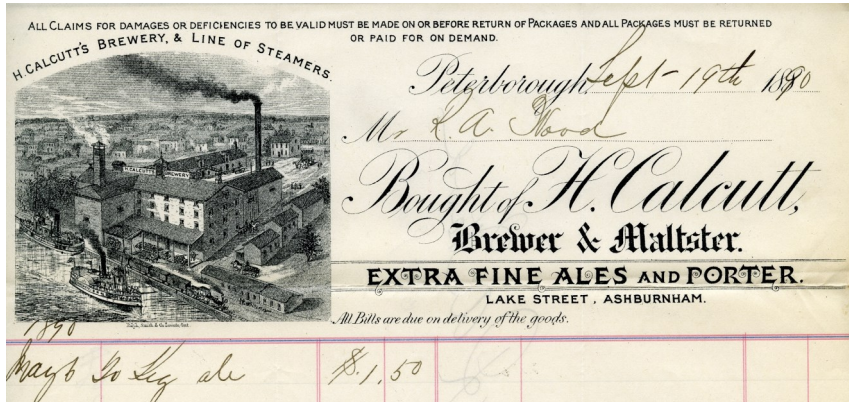 ALL CLAIMS FOR DAMAGES OR DEFICIENCIES TO BE VALID MUST BE MADE ON OR BEFORE RETURN OF PACKAGES AND ALL PACKAGES MUST BE RETURNED
OR PAID FOR ON DEMAND.
H. CALCUTT'S BREWERY, & LINE OF STEAMERS.
H. CALCUTT'S BREWERY
Peterborough, Sept 19th 1890
Mr R. A. Wood
Bought of H. Calcutt,
Brewer & Maltster.
EXTRA FINE ALES AND PORTER.
LAKE STREET, ASHBURNHAM.
All Bills are due on delivery of the goods.
1890
May 6 Keg ale $1.50